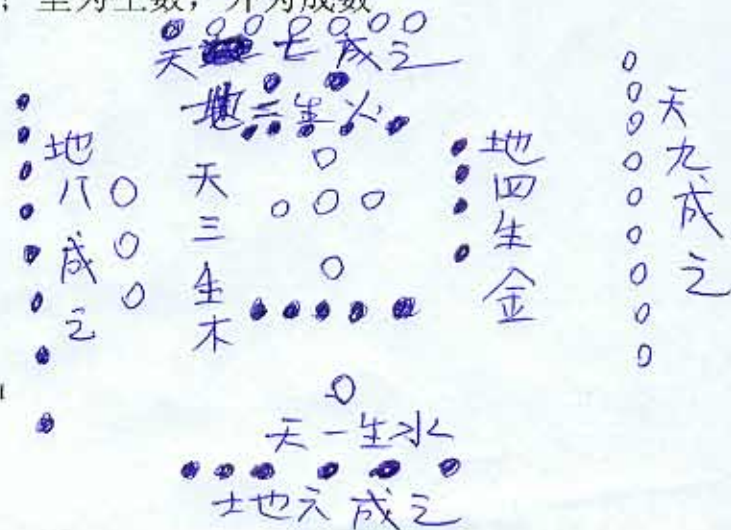 里为生数，外为成数
天七成之
地二生火
地八成之
天三生木
地四生金
天九成之
天一生水
地六成之